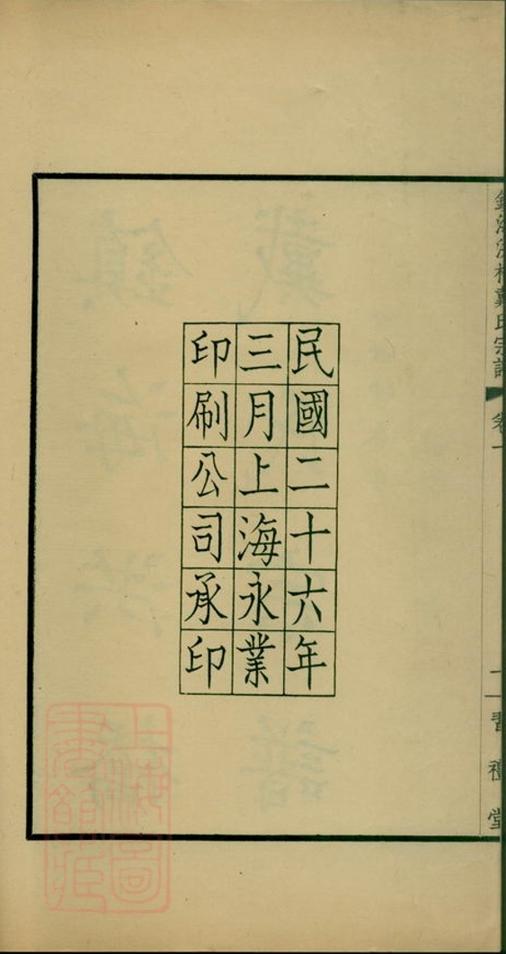 民國二十六年
三月上海永業
印刷公司承印
戴氏宗譜
卷一
習禮堂
上海圖書館藏